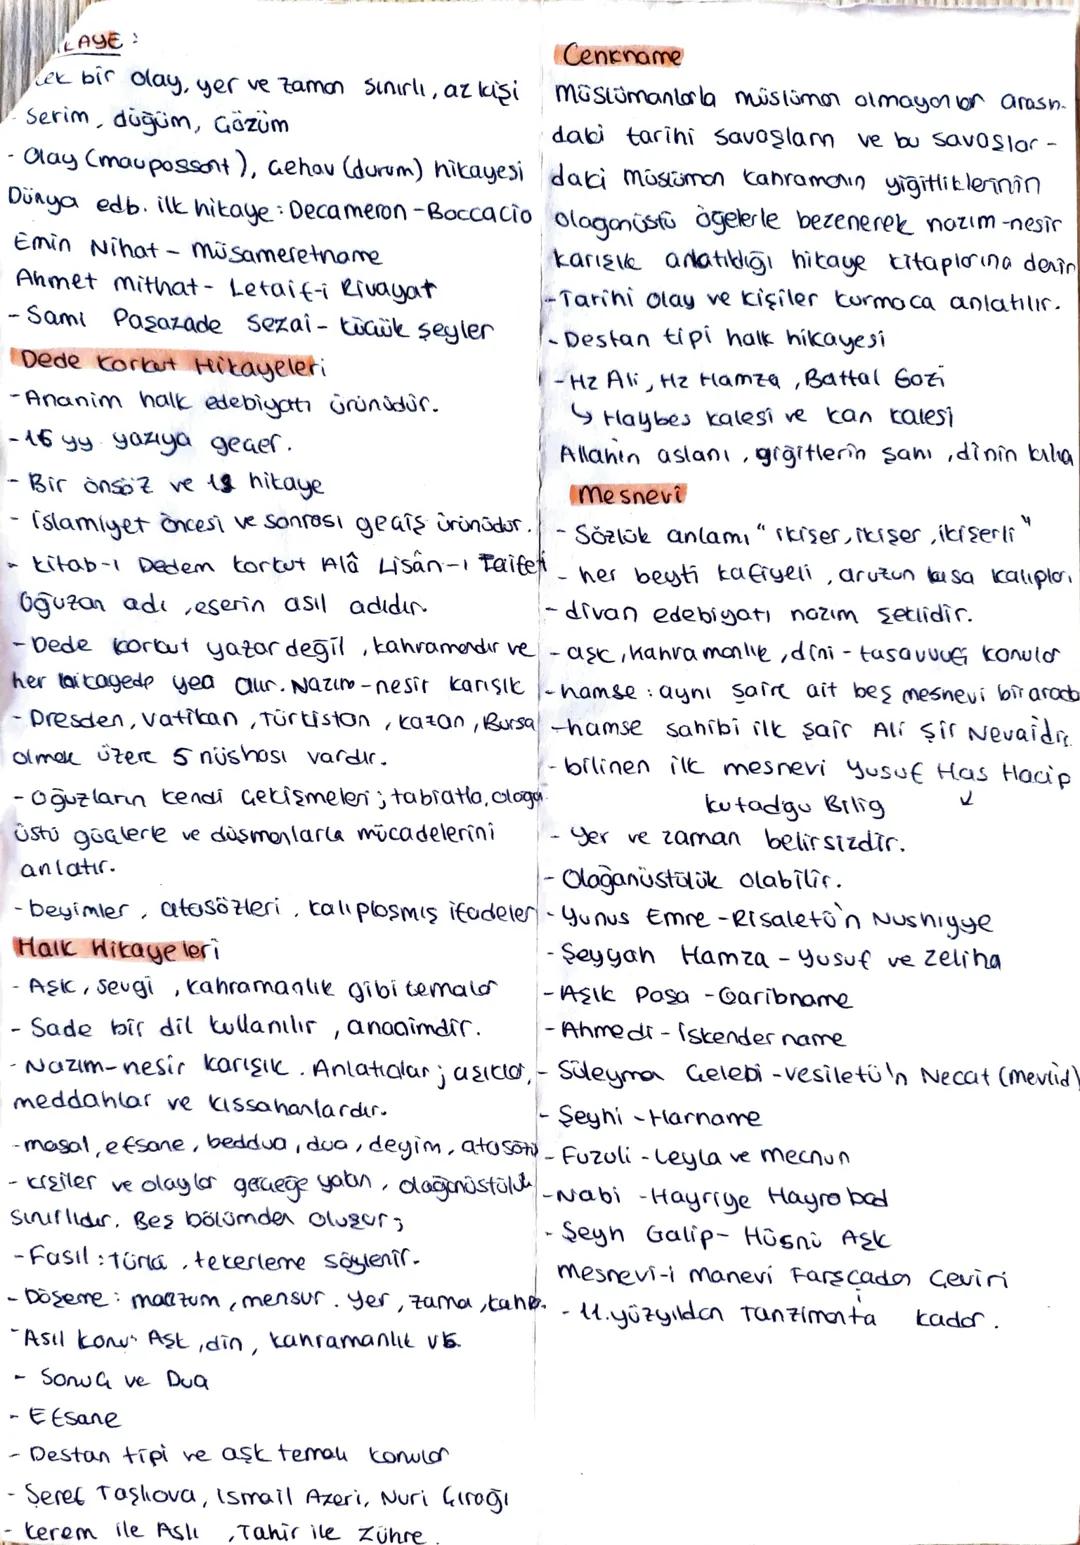 LAYE :
tek bir olay, yer ve zaman sınırlı, az kişi
Serim, düğüm, Gözüm
- Olay (maupossant), Gehav (durum) hikayesi
Dünya edb. ilk hikaye : Decameron - Boccacio
Emin Nihat - müsameretname
Ahmet mithat - Letaif-i Rivayat
- Samı Paşazade Sezai - küçük şeyler
Dede Korkut Hikayeleri
- Ananim halk edebiyatı ürünüdür.
- 16 yy. yazıya geçer.
- Bir önsöz ve 12 hikaye
- islamiyet öncesi ve sonrası geçiş ürünüdür.
- kitab-ı Dedem korkut Alâ Lisân-ı Taifeti
Oğuzan adı, eserin asıl adıdır.
- Dede korkut yazar değil, kahramandır ve
her hikayede yer alır. Nazım-nesir karışık
- Dresden, Vatikan, Türkistan, kazan, Bursa
olmak üzere 5 nüshası vardır.
- Oğuzların kendi çekişmeleri; tabiatla, olağan
üstü güçlerle ve düşmanlarla mücadelerini
anlatır.
- deyimler, atasözleri, kalıplaşmış ifadeler
Halk Hikayeleri
- Aşk, sevgi, kahramanlık gibi temalar
- Sade bir dil kullanılır, anonimdir.
- Nazım-nesir karışık. Anlatıcılar; aşıklar,
meddahlar ve kıssahanlardır.
- masal, efsane, beddua, dua, deyim, atasözü
- kişiler ve olaylar gerçeğe yakın, olağanüstülük
sınırlıdır. Beş bölümden oluşur;
- Fasıl : türkü, tekerleme söylenir.
- Döşeme : manzum, mensur. Yer, zaman, kahr.
- Asıl konu: Aşk, din, kahramanlık vb.
- Sonuç ve Dua
- Efsane
- Destan tipi ve aşk temalı konular
- Şeref Taşlıova, İsmail Azeri, Nuri Çırağı
- kerem ile Aslı, Tahir ile Zühre.
Cenkname
Müslümanlarla müslüman olmayanlar arasın-
daki tarihi savaşların ve bu savaşlar-
daki müslüman kahramanın yiğitliklerinin
olaganüstü öğelerle bezenerek nazım-nesir
karışık anlatıldığı hikaye kitaplarına denir
- Tarihi olay ve kişiler kurmaca anlatılır.
- Destan tipi halk hikayesi
- Hz Ali, Hz Hamza, Battal Gazi
↳ Haybes kalesi ve kan kalesi
Allahın aslanı, yiğitlerin şahı, dinin kılıcı
Mesnevi
- Sözlük anlamı "ikişer, ikişer, ikişerli"
- her beyti kafiyeli, aruzun kısa kalıpları
- divan edebiyatı nazım şeklidir.
- aşk, kahramanlık, dini-tasavvuf konular
- hamse : aynı şaire ait beş mesnevi bir arada
- hamse sahibi ilk şair Ali Şir Nevaidir.
- bilinen ilk mesnevi Yusuf Has Hacip
kutadgu Bilig ↙
- Yer ve zaman belirsizdir.
- Olağanüstülük olabilir.
- Yunus Emre - Risaletü'n Nushiyye
- Şeyyah Hamza - Yusuf ve Zeliha
- Aşık Paşa - Garibname
- Ahmedi - İskender name
- Süleyman Çelebi - Vesiletü'n Necat (mevlid)
- Şeyhi - Harname
- Fuzuli - Leyla ve mecnun
- Nabi - Hayriye Hayrabad
- Şeyh Galip - Hüsnü Aşk
Mesnevi-i Manevi Farsçadan Çeviri
- 11. yüzyıldan Tanzimanta kadar.